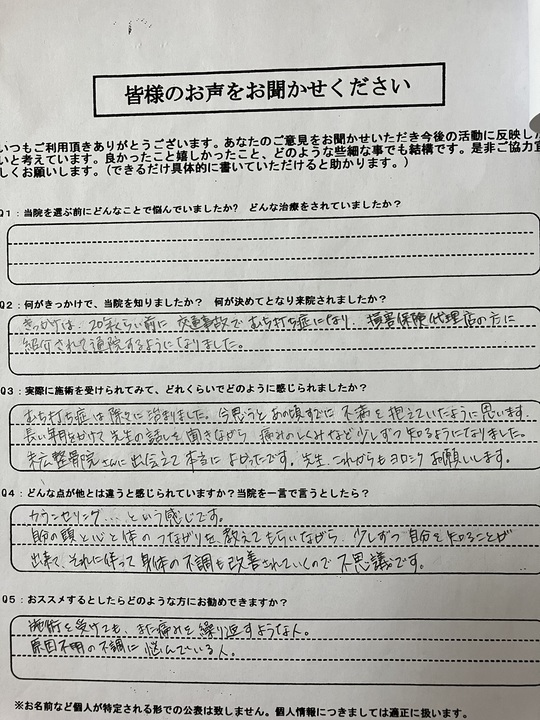 皆様のお声をお聞かせください
いつもご利用頂きありがとうございます。あなたのご意見をお聞かせいただき今後の活動に反映した
いと考えています。良かったこと嬉しかったこと、どのような些細な事でも結構です。是非ご協力宜
しくお願いします。(できるだけ具体的に書いていただけると助かります。)
Q1：当院を選ぶ前にどんなことで悩んでいましたか?　どんな治療をされていましたか？
Q2：何がきっかけで、当院を知りましたか？　何が決めてとなり来院されましたか？
きっかけは、20年くらい前に 交通事故で むち打ち症になり、損害保険代理店の方に
紹介されて通院するようになりました。
Q3：実際に施術を受けられてみて、どれくらいでどのように感じられましたか？
むち打ち症は除々に治まりました。今思うとあの頃すでに 不調を抱えていたように思います。
長い年月をかけて先生の話しを聞きながら、痛みのしくみなど少しずつ知るようになりました。
末広整骨院さんに出会えて本当に よかったです。先生、これからもヨロシクお願いします。
Q4：どんな点が他とは違うと感じられていますか？当院を一言で言うとしたら？
カウンセリング…という感じです。
自分の頭と心と体のつながりを、教えてもらいながら、少しずつ自分を知ることが
出来て、それに伴って身体の不調も改善されていくので不思議です。
Q5：おススメするとしたらどのような方にお勧めできますか？
施術を受けても、また痛みを繰り返すような人。
原因不明の不調に悩んでいる人。
※お名前など個人が特定される形での公表は致しません。個人情報につきましては適正に扱います。